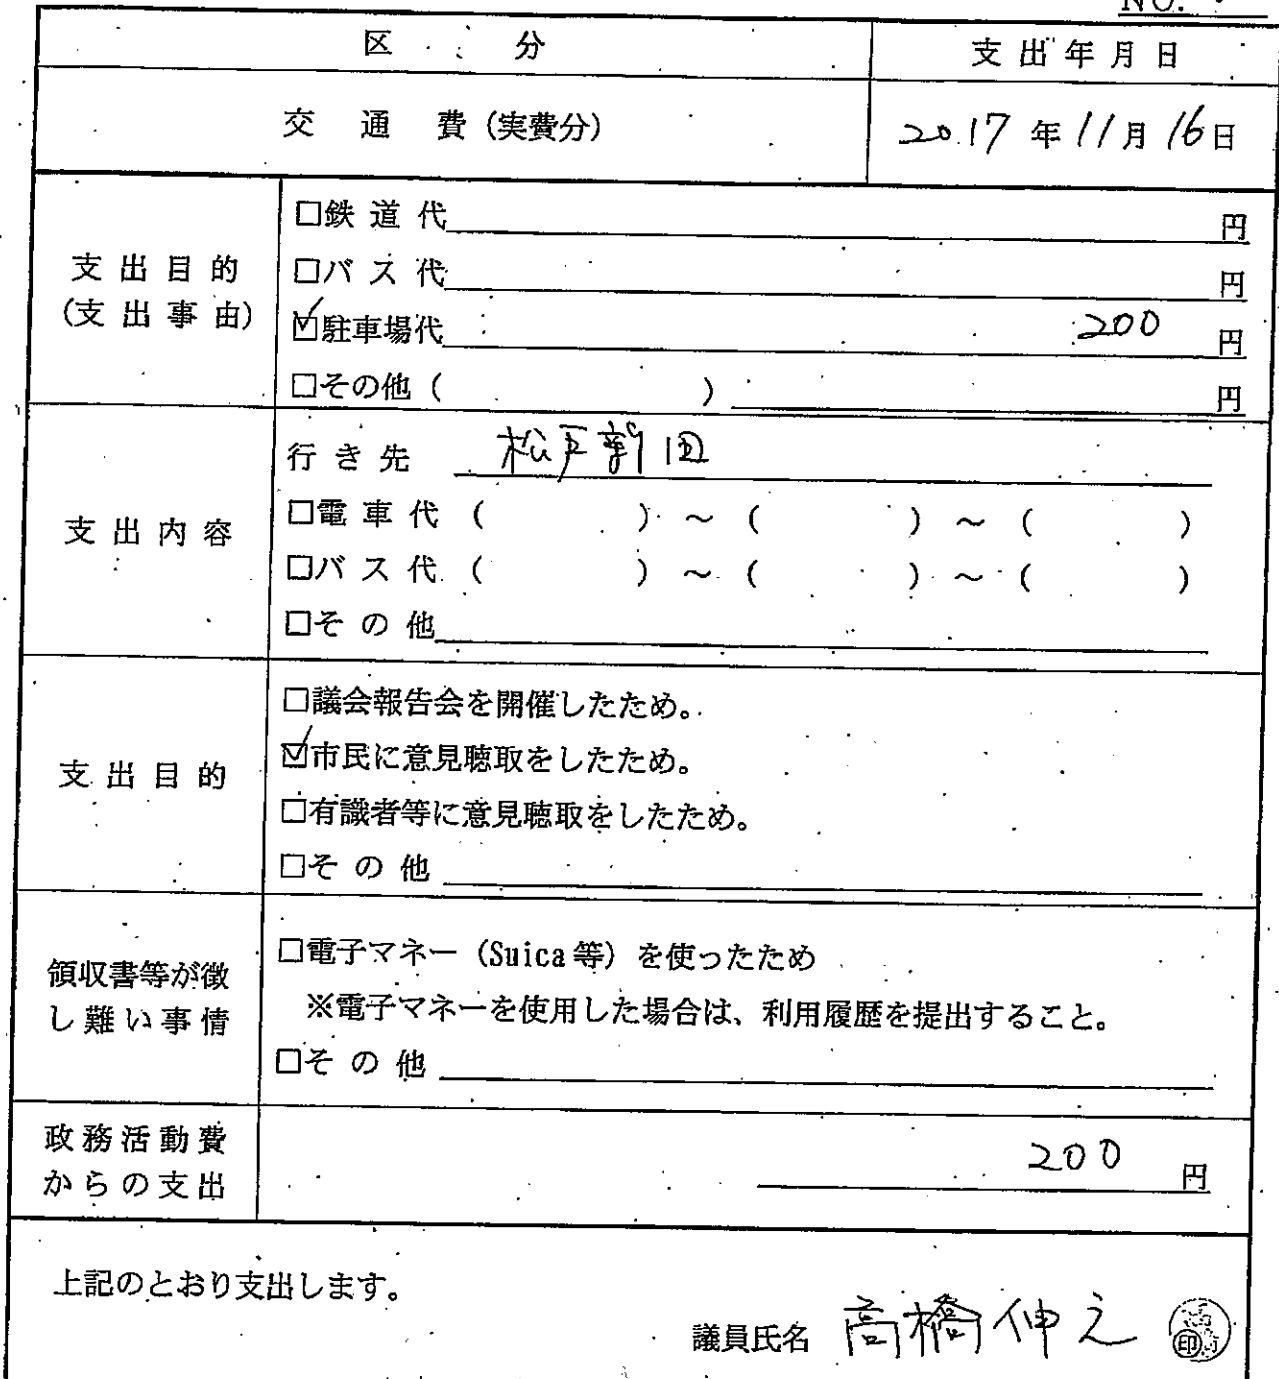 NO.
区 分 支出年月日
交 通 費 (実費分) 2017年11月16日
支出目的
(支出事由)
□鉄道代 円
□バス代 円
☑駐車場代 200 円
□その他 ( ) 円
支出内容
行き先 松戸新田
□電車代 ( ) ～ ( ) ～ ( )
□バス代 ( ) ～ ( ) ～ ( )
□その他
支出目的
□議会報告会を開催したため。
☑市民に意見聴取をしたため。
□有識者等に意見聴取をしたため。
□その他
領収書等が徴
し難い事情
□電子マネー (Suica等) を使ったため
※電子マネーを使用した場合は、利用履歴を提出すること。
□その他
政務活動費
からの支出
200 円
上記のとおり支出します。
議員氏名 高橋伸之 印